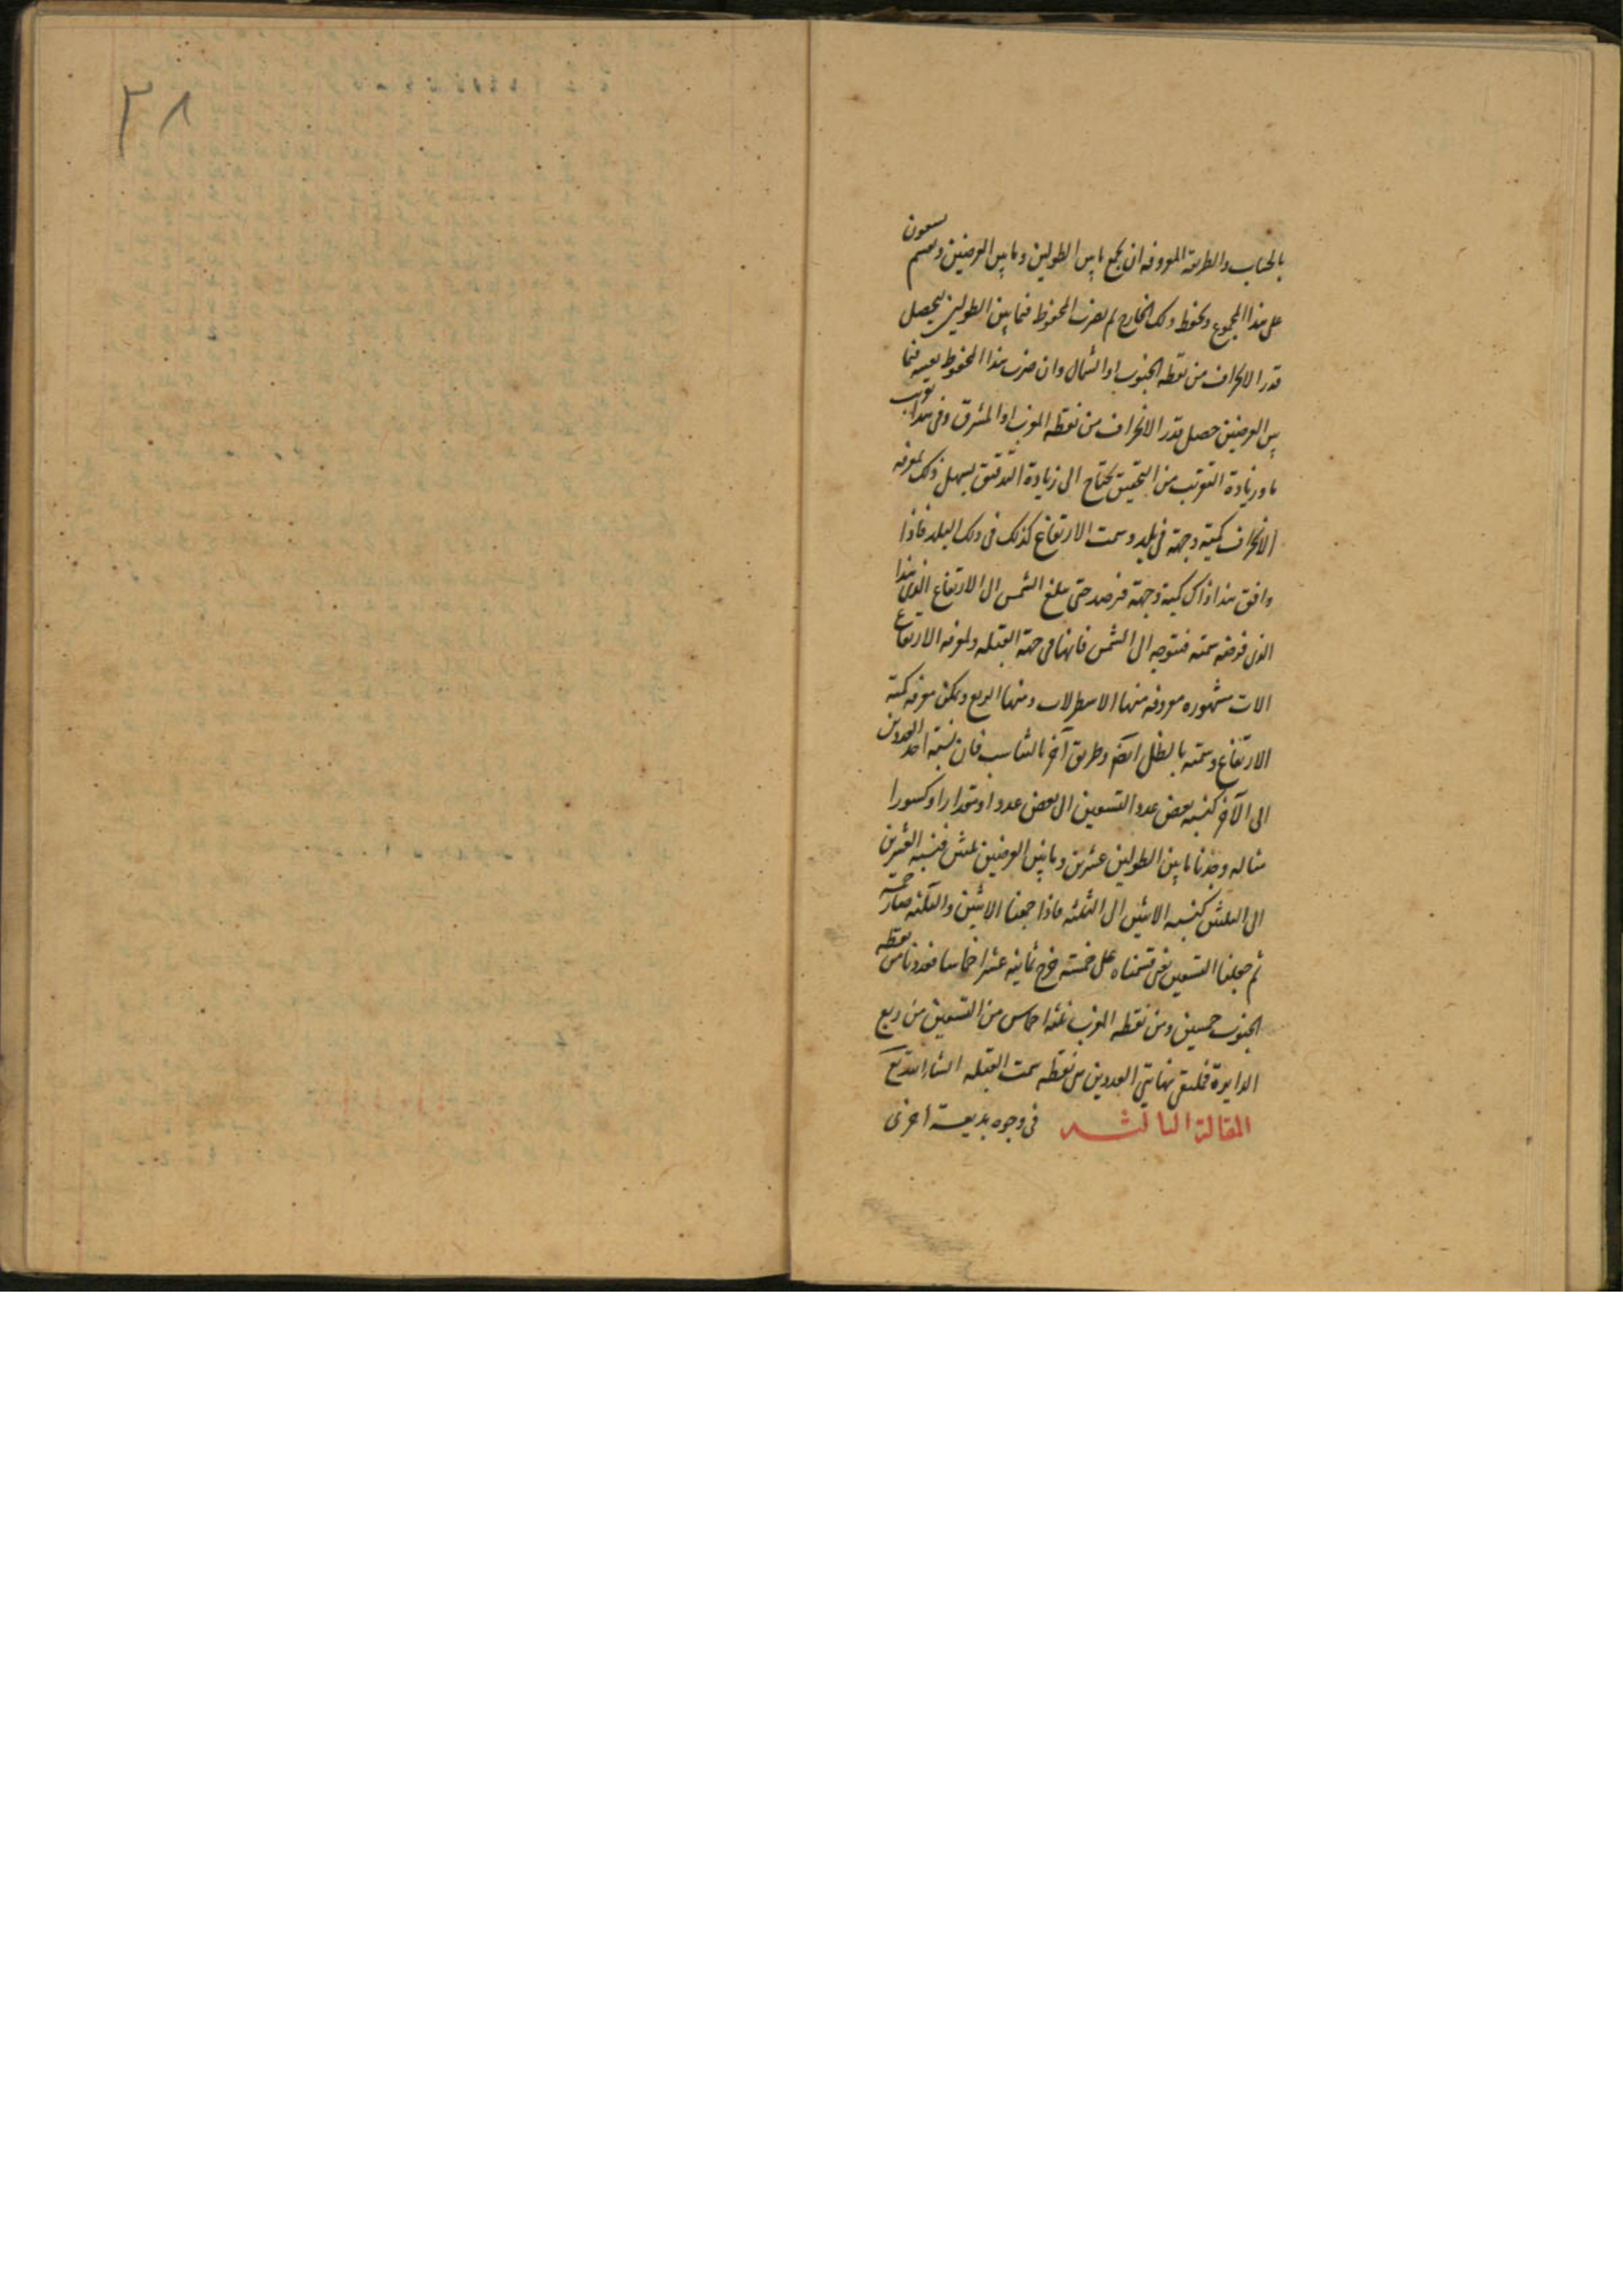 بالحساب والطريقة المعروفه ان يجمع ما بين الطولين وما بين العرضين ويقسم تسعون
على هذا المجموع ويحفظ ذلك الخارج ثم يضرب المحفوظ فيما بين الطولين يحصل
قدر الانحراف من نقطه الجنوب او الشمال وان ضرب هذا المحفوظ بعينه فيما
بين العرضين حصل قدر الانحراف من نقطه المغرب او المشرق وفي هذا تقريب
ما وزيادة التقريب من التحقيق يحتاج الى زيادة التدقيق يسهل ذلك لمعرفه
الانحراف كمية وجهة في بلد وسمت الارتفاع كذلك في ذلك البلد فاذا
وافق هذا ذاك كمية وجهة فرصد حتى يبلغ الشمس الى الارتفاع الذي هذا
الذي فرضه سمته فتوجه الى الشمس فانها في جهة القبله ولمعرفه الارتفاع
الات مشهوره معروفه منها الاسطرلاب ومنها الربع ويمكن معرفه كمية
الارتفاع وسمته بالظل ايضا وطريق آخر بالتناسب فان نسبة احد العددين
الى الآخر كنسبه بعض عدد التسعين الى بعض عددا ومقدارا وكسورا
مثاله وجدنا ما بين الطولين عشرين وما بين العرضين ثلثين فنسبه العشرين
الى الثلثين كنسبه الاثنين الى الثلثه فاذا جمعنا الاثنين والثلثه صار خمسة
ثم جعلنا التسعين يعني قسمناه على خمسة خرج ثمانية عشر اخماسا فعددنا من نقطه
الجنوب خمسين ومن نقطه المغرب ثلثه اخماس من التسعين من ربع
الدايرة فملتقى نهايتي العددين من نقطه سمت القبله
المقالة الثالثه في وجوه بديعة اخرى
٣٨